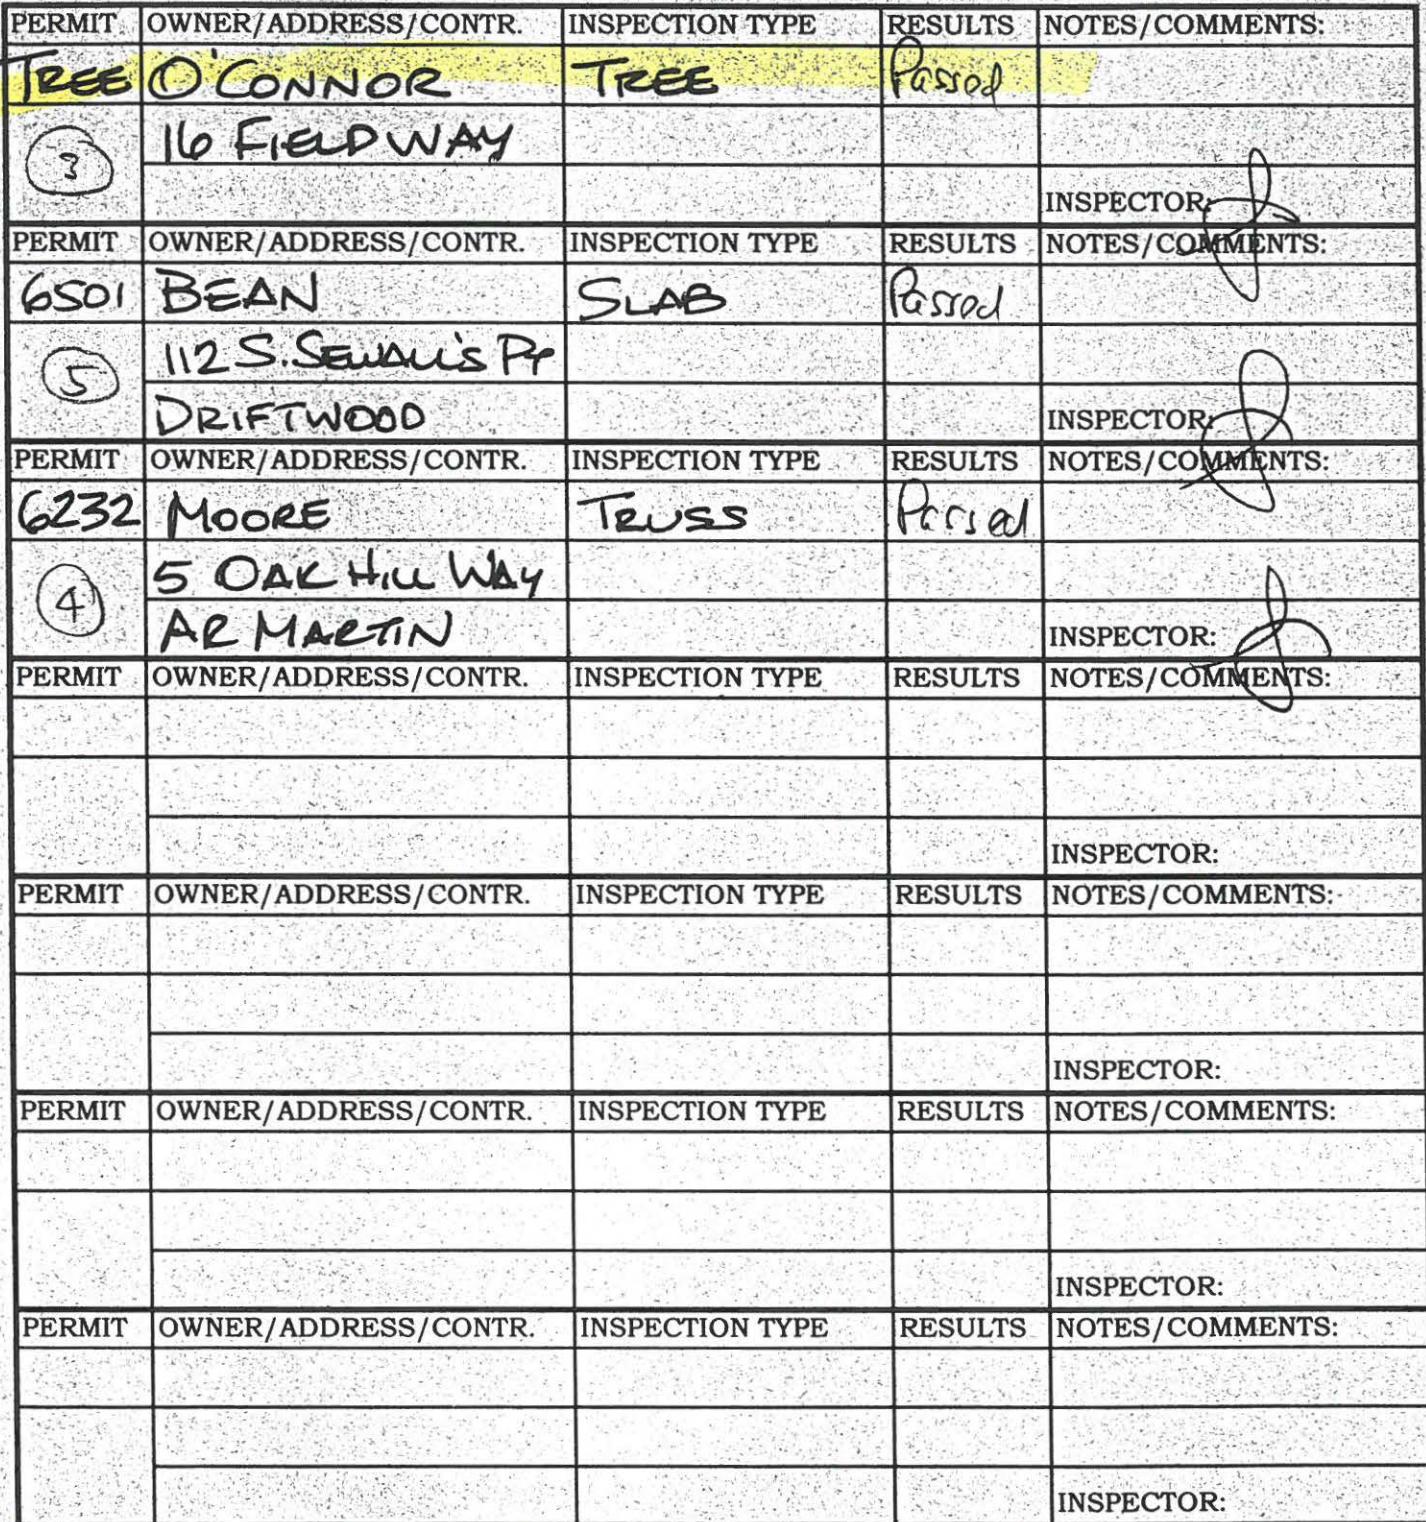 PERMIT OWNER/ADDRESS/CONTR. INSPECTION TYPE RESULTS NOTES/COMMENTS:
TREE O'CONNOR TREE Passed
16 FIELDWAY
3
INSPECTOR:
PERMIT OWNER/ADDRESS/CONTR. INSPECTION TYPE RESULTS NOTES/COMMENTS:
6501 BEAN SLAB Passed
112 S. SEWALL'S PT
5
DRIFTWOOD INSPECTOR:
PERMIT OWNER/ADDRESS/CONTR. INSPECTION TYPE RESULTS NOTES/COMMENTS:
6232 MOORE TRUSS Passed
5 OAK HILL WAY
4
AR MARTIN INSPECTOR:
PERMIT OWNER/ADDRESS/CONTR. INSPECTION TYPE RESULTS NOTES/COMMENTS:
INSPECTOR:
PERMIT OWNER/ADDRESS/CONTR. INSPECTION TYPE RESULTS NOTES/COMMENTS:
INSPECTOR:
PERMIT OWNER/ADDRESS/CONTR. INSPECTION TYPE RESULTS NOTES/COMMENTS:
INSPECTOR:
PERMIT OWNER/ADDRESS/CONTR. INSPECTION TYPE RESULTS NOTES/COMMENTS:
INSPECTOR: